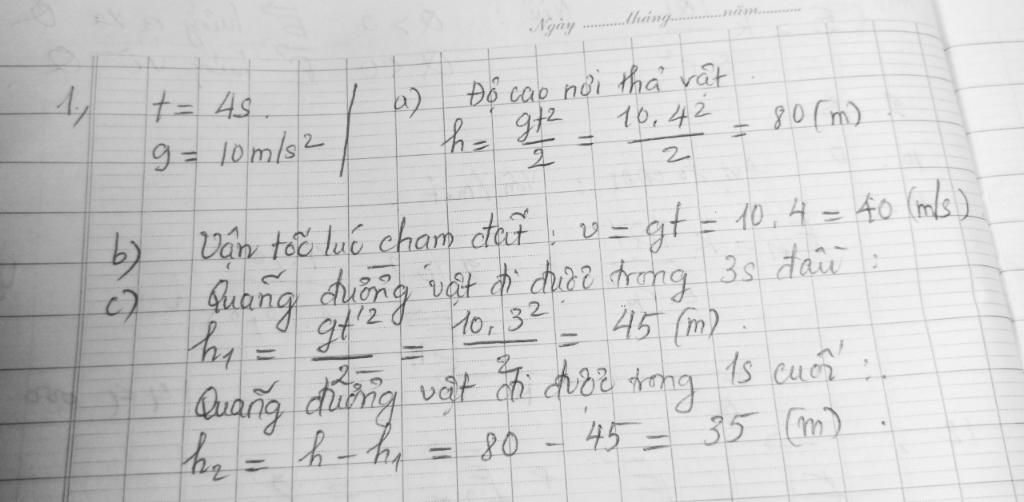 Ngày ............tháng............năm............
1., t = 4s. a) Độ cao nơi thả vật.
g = 10m/s² h = gt²/2 = 10.4²/2 = 80 (m)
b) Vận tốc lúc chạm đất: v = gt = 10.4 = 40 (m/s)
c) Quãng đường vật đi được trong 3s đầu:
h₁ = gt'²/2 = 10.3²/2 = 45 (m).
Quãng đường vật đi được trong 1s cuối:
h₂ = h - h₁ = 80 - 45 = 35 (m).